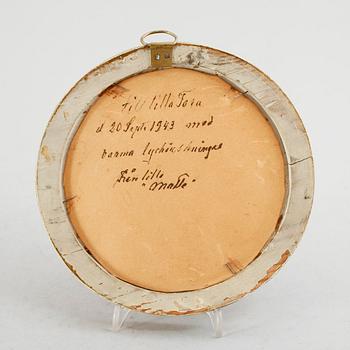 Till lilla Tora
d 20 Sept. 1943 med
varma lyckönskningar
från lilla
"Malle"